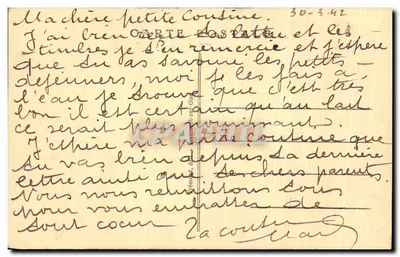 Ma chère petite Cousine.
30-3.42
J'ai bien reçu ta lettre et les
CARTE POSTALE
timbres je t'en remercie et j'espère
que tu as savouré les petits-
déjeuners, moi je les fais à
l'eau je trouve que c'est très
bon il est certain qu'au lait
ce serait plus nourrissant.
J'espère ma petite cousine que
tu vas bien depuis ta dernière
lettre ainsi que tes chers parents.
Nous nous réunissons tous
pour vous embrasser de
tout coeur
Ta cousine